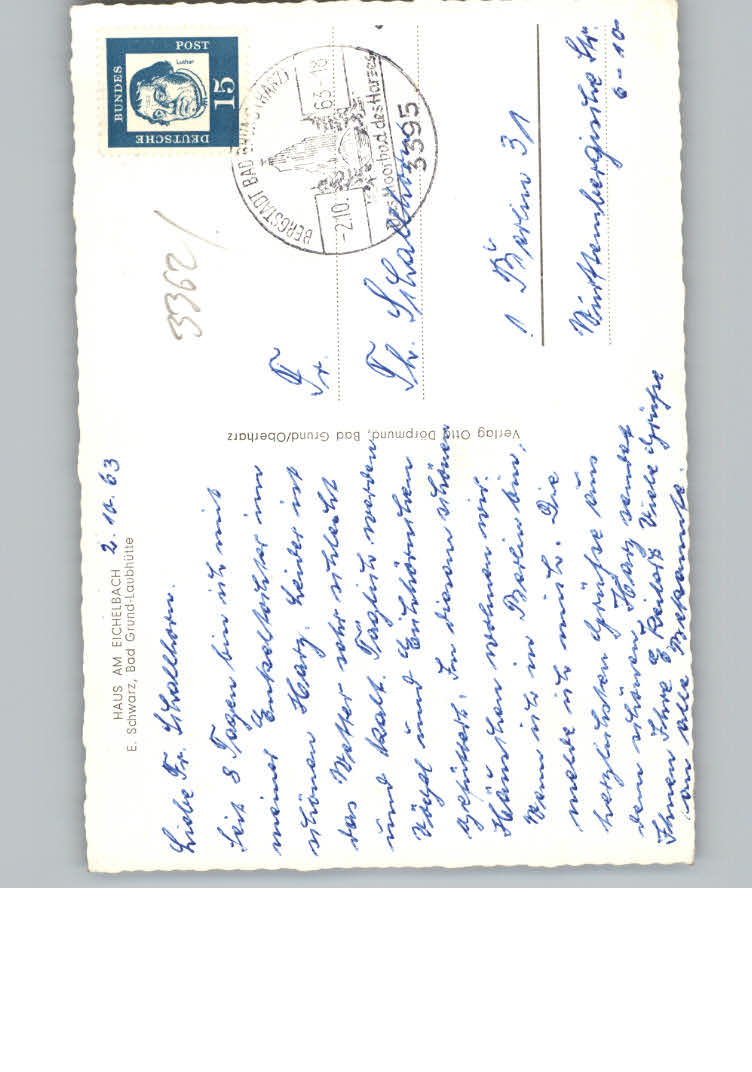 HAUS AM EICHELBACH
E. Schwarz, Bad Grund-Laubhütte
2.10.63
Liebe Fr. Schallhorn.
Seit 8 Tagen bin ich mit
meiner Enkeltochter im
schönen Harz. Leider ist
das Wetter sehr schlecht
und kalt. Täglich werden
Vögel und Eichhörnchen
gefüttert. In diesem schönen
Häuschen wohnen wir.
Wenn ich in Berlin bin,
melde ich mich. Die
herzlichsten Grüße aus
dem schönen Harz sendet
Ihnen Ihre E. Viele Grüße
an alle Bekannte.
Verlag Otto Dörpmund, Bad Grund/Oberharz
3362
DEUTSCHE
BUNDES
POST
15
Luther
BERGSTADT BAD GRUND (HARZ)
-2.10.63-18
das Moorbad des Harzes
3395
Fr.
Th. Schallhorn
1 Berlin 31
Württembergische Str.
6-10